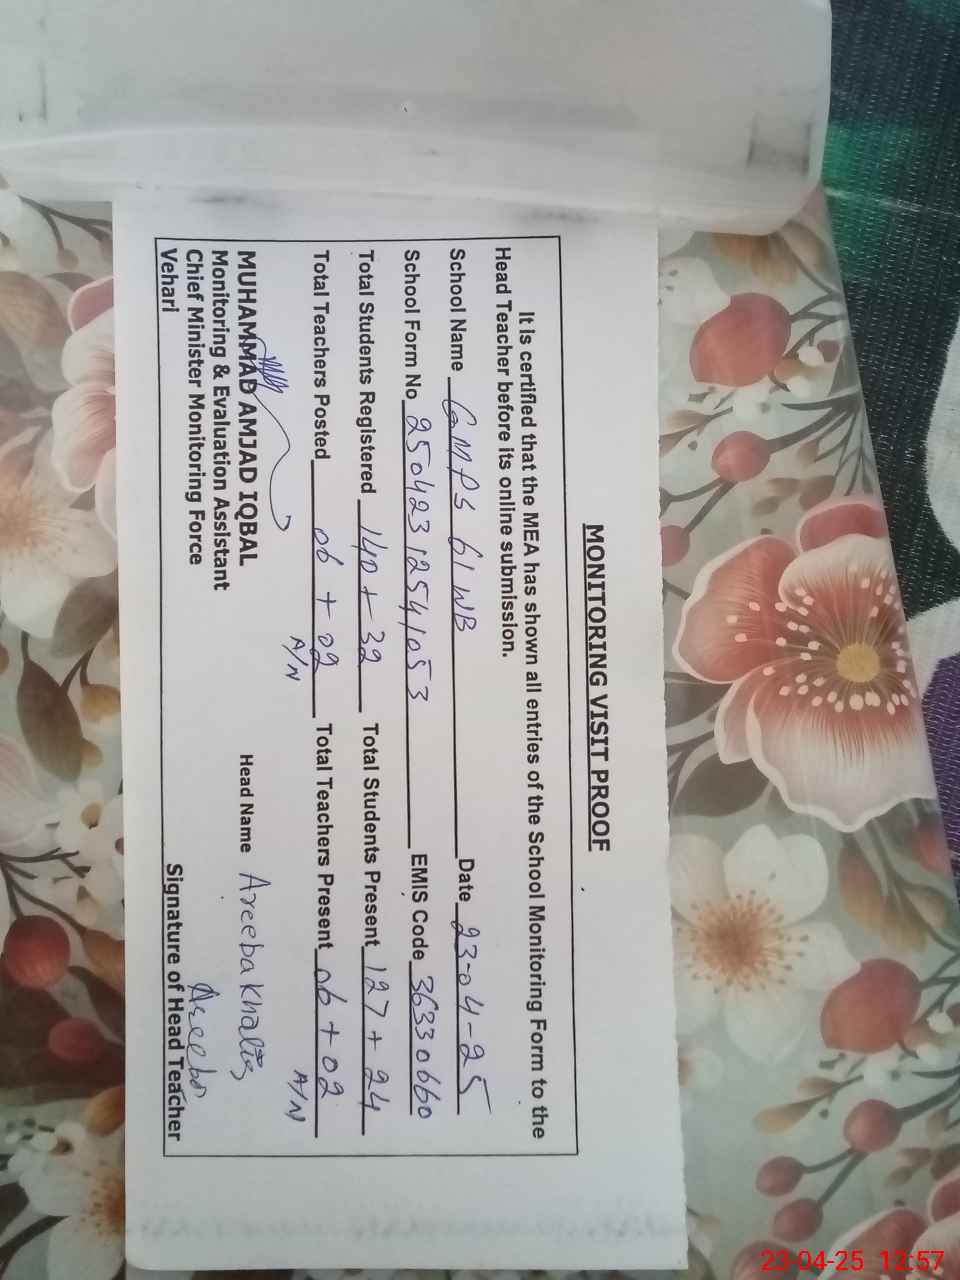 MONITORING VISIT PROOF
It is certified that the MEA has shown all entries of the School Monitoring Form to the
Head Teacher before its online submission.
School Name GMPS 61 WB Date 23-04-25
School Form No 25042312541053 EMIS Code 36330660
Total Students Registered 140 + 32 Total Students Present 127 + 24
Total Teachers Posted 06 + 02 Total Teachers Present 06 + 02
A/N A/N
MUHAMMAD AMJAD IQBAL Head Name Areeba Khaliq
Monitoring & Evaluation Assistant
Chief Minister Monitoring Force Areeba
Vehari Signature of Head Teacher
23-04-25 12:57